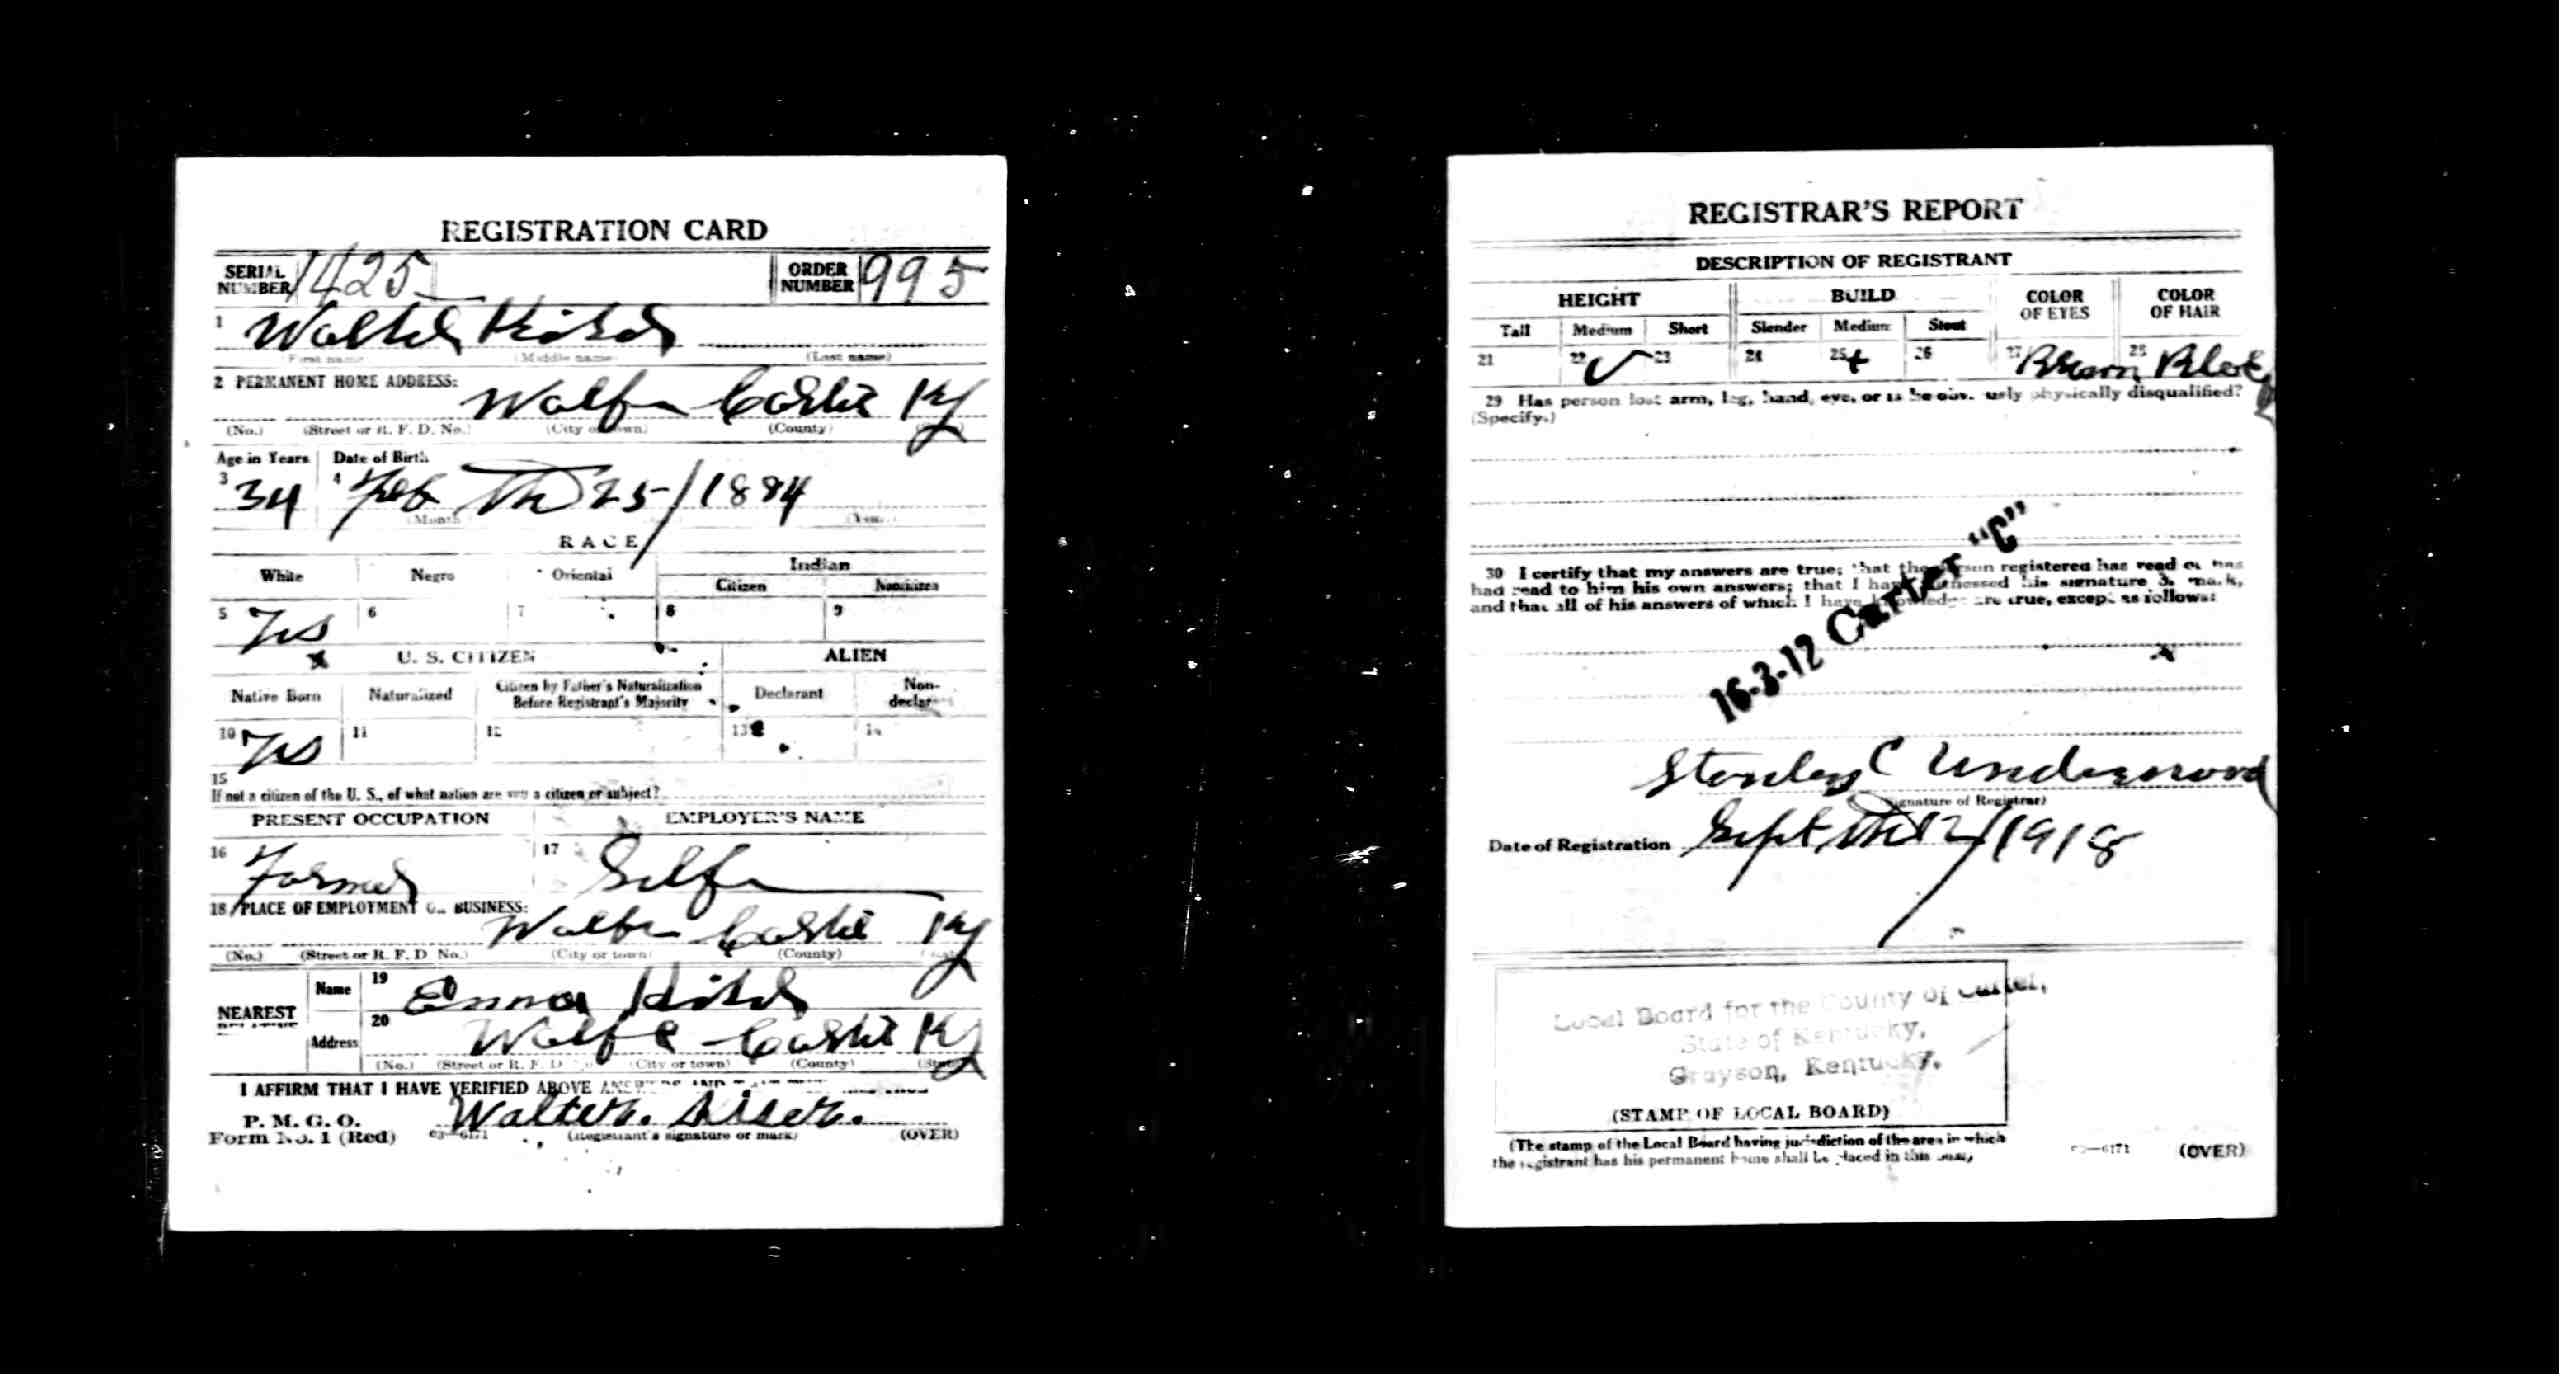 REGISTRATION CARD
SERIAL NUMBER 1425 ORDER NUMBER 995
1 Walter
(First name) (Middle name) (Last name)
2 PERMANENT HOME ADDRESS:
Carter Ky
(No.) (Street or R. F. D. No.) (City or town) (County)
Age in Years Date of Birth
3 34 4 Feb The 25/1884
(Month
RACE
White Negro Oriental Indian
Citizen Noncitizen
5 Yes 6 7 8 9
U. S. CITIZEN ALIEN
Native Born Naturalized Citizen by Father's Naturalization Before Registrant's Majority Declarant Non-declarant
10 Yes 11 12 13 14
15
If not a citizen of the U. S., of what nation are you a citizen or subject?
PRESENT OCCUPATION EMPLOYER'S NAME
16 Farmer 17 Self
18 PLACE OF EMPLOYMENT OR BUSINESS:
Carter Ky
(No.) (Street or R. F. D. No.) (City or town) (County)
NEAREST
Name 19 Emma
Address 20 Carter Ky
(No.) (Street or R. F. D. No.) (City or town) (County) (State)
I AFFIRM THAT I HAVE VERIFIED ABOVE ANSWERS AND THAT THEY
P. M. G. O.
Form No. 1 (Red) 03—6171 Walter.
(Registrant's signature or mark) (OVER)
REGISTRAR'S REPORT
DESCRIPTION OF REGISTRANT
HEIGHT BUILD COLOR OF EYES COLOR OF HAIR
Tall Medium Short Slender Medium Stout
21 22 ✓ 23 24 25 + 26 27 Brown 28 Black
29 Has person lost arm, leg, hand, eye, or is he obviously physically disqualified?
(Specify.)
30 I certify that my answers are true; that the person registered has read or has
had read to him his own answers; that I have witnessed his signature or mark,
and that all of his answers of which I have knowledge are true, except as follows:
16-3-12 Carter "C"
Stanley C Underwood
(Signature of Registrar)
Date of Registration Sept The 12/1918
Local Board for the County of Carter,
State of Kentucky,
Grayson, Kentucky.
(STAMP OF LOCAL BOARD)
(The stamp of the Local Board having jurisdiction of the area in which
the registrant has his permanent home shall be placed in this box.)
03—6171 (OVER)